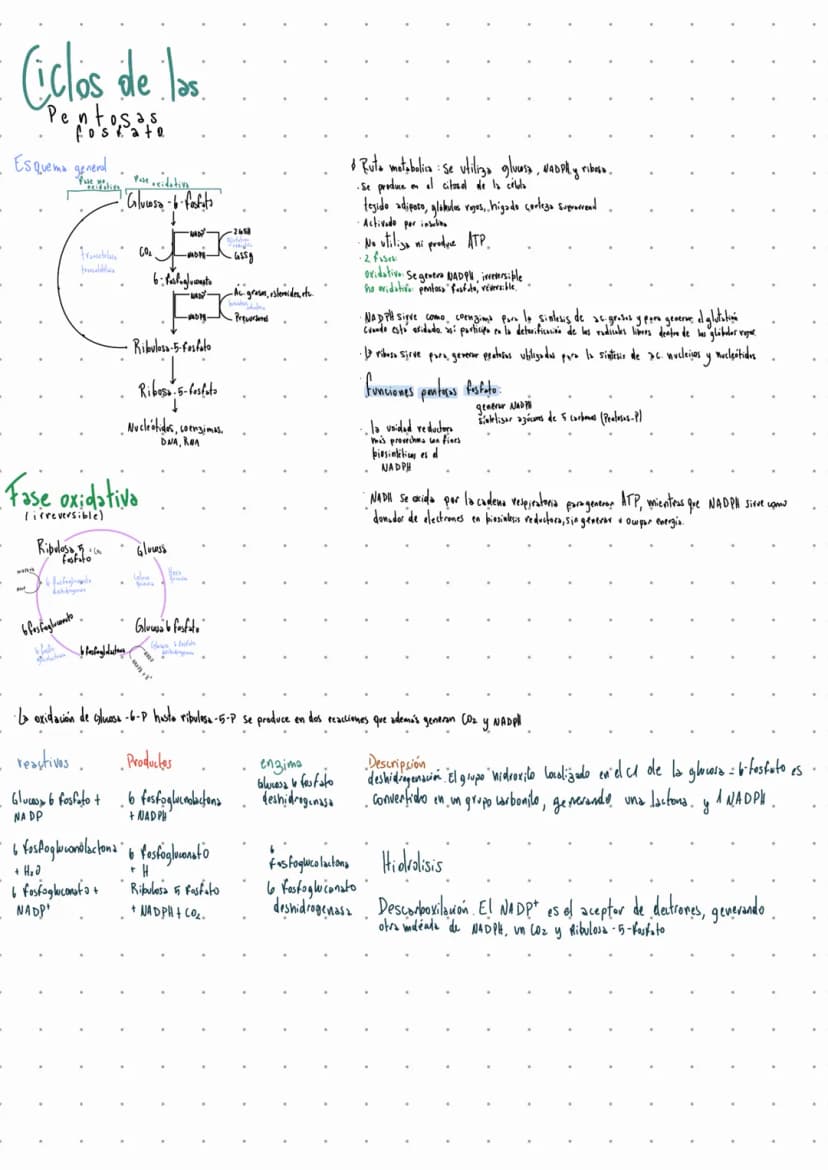 Ciclos de las
Pentosas
fosfato
Esquema general
Fase no oxidativa
Fase oxidativa
Glucosa-6-fosfato
NADP+
2GSH
CO2
NADPH
GSSG
6-fosfogluconato
NADP+
Ac. grasos, esteroides, etc.
NADPH
Precursores
Ribulosa-5-fosfato
Ribosa-5-fosfato
Nucleótidos, coenzimas,
DNA, RNA
Ruta metabolica: Se utiliza glucosa, NADPH y ribosa.
· Se produce en el citosol de la célula
tejido adiposo, glóbulos rojos, higado corteza suprarrenal
· Activado por insulina
· No utiliza ni produce ATP.
· 2 fases:
oxidativa: Se genera NADPH, irreversible
no oxidativa: pentosa fosfato, reversible.
· NADPH sirve como coenzima para la sintesis de ac. grasos y para generar el glutatión
cuando está oxidado. así participa en la detoxificación de los radicales libres dentro de los glóbulos rojos.
ribosa sirve para generar pentosas obligadas para la síntesis de ac. nucleicos y nucleótidos
funciones pentosas fosfato:
generar NADPH
sintetizar azúcares de 5 carbonos (Pentosas-P)
· la unidad reductora
más provechosa con fines
biosintéticos es el
NADPH
NADH se oxida por la cadena respiratoria para generar ATP, mientras que NADPH sirve como
donador de electrones en biosintesis reductora, sin generar u ocupar energía.
Fase oxidativa
(irreversible)
Ribulosa 5 fosfato
Glucosa
6 fosfogluconato deshidrogenasa
6 fosfogluconato
Glucosa 6 fosfato
6 fosfoglulactona
Glucosa 6 fosfato deshidrogenasa
oxidación de glucosa-6-P hasta ribulosa-5-P se produce en dos reacciones que además generan CO2 y NADPH
reactivos
Productos
enzima
Descripción
Glucosa 6 fosfato +
NADP
6 fosfogluconolactona
+ NADPH
Glucosa 6 fosfato
deshidrogenasa
deshidrogenación. El grupo hidroxilo localizado en el C1 de la glucosa-6-fosfato es
convertido en un grupo carbonilo, generando una lactona. y 1 NADPH.
6 fosfogluconolactona
+ H2O
6 fosfogluconato
+ H
6
fosfoglucolactona
Hidrolisis
6 fosfogluconato +
NADP+
Ribulosa 5 fosfato
+ NADPH + CO2
6 fosfogluconato
deshidrogenasa
Descarboxilación. El NADP+ es el aceptor de electrones, generando
otra molécula de NADPH, un CO2 y Ribulosa-5-fosfato